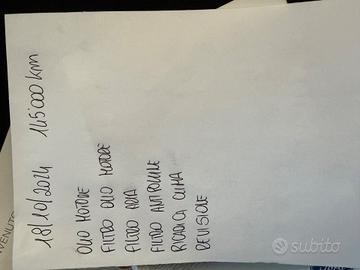 18/10/2024 145'000 km
OLIO MOTORE
FILTRO OLIO MOTORE
FILTRO ARIA
FILTRO ANTIPOLLINE
RICARICA CLIMA
REVISIONE
subito